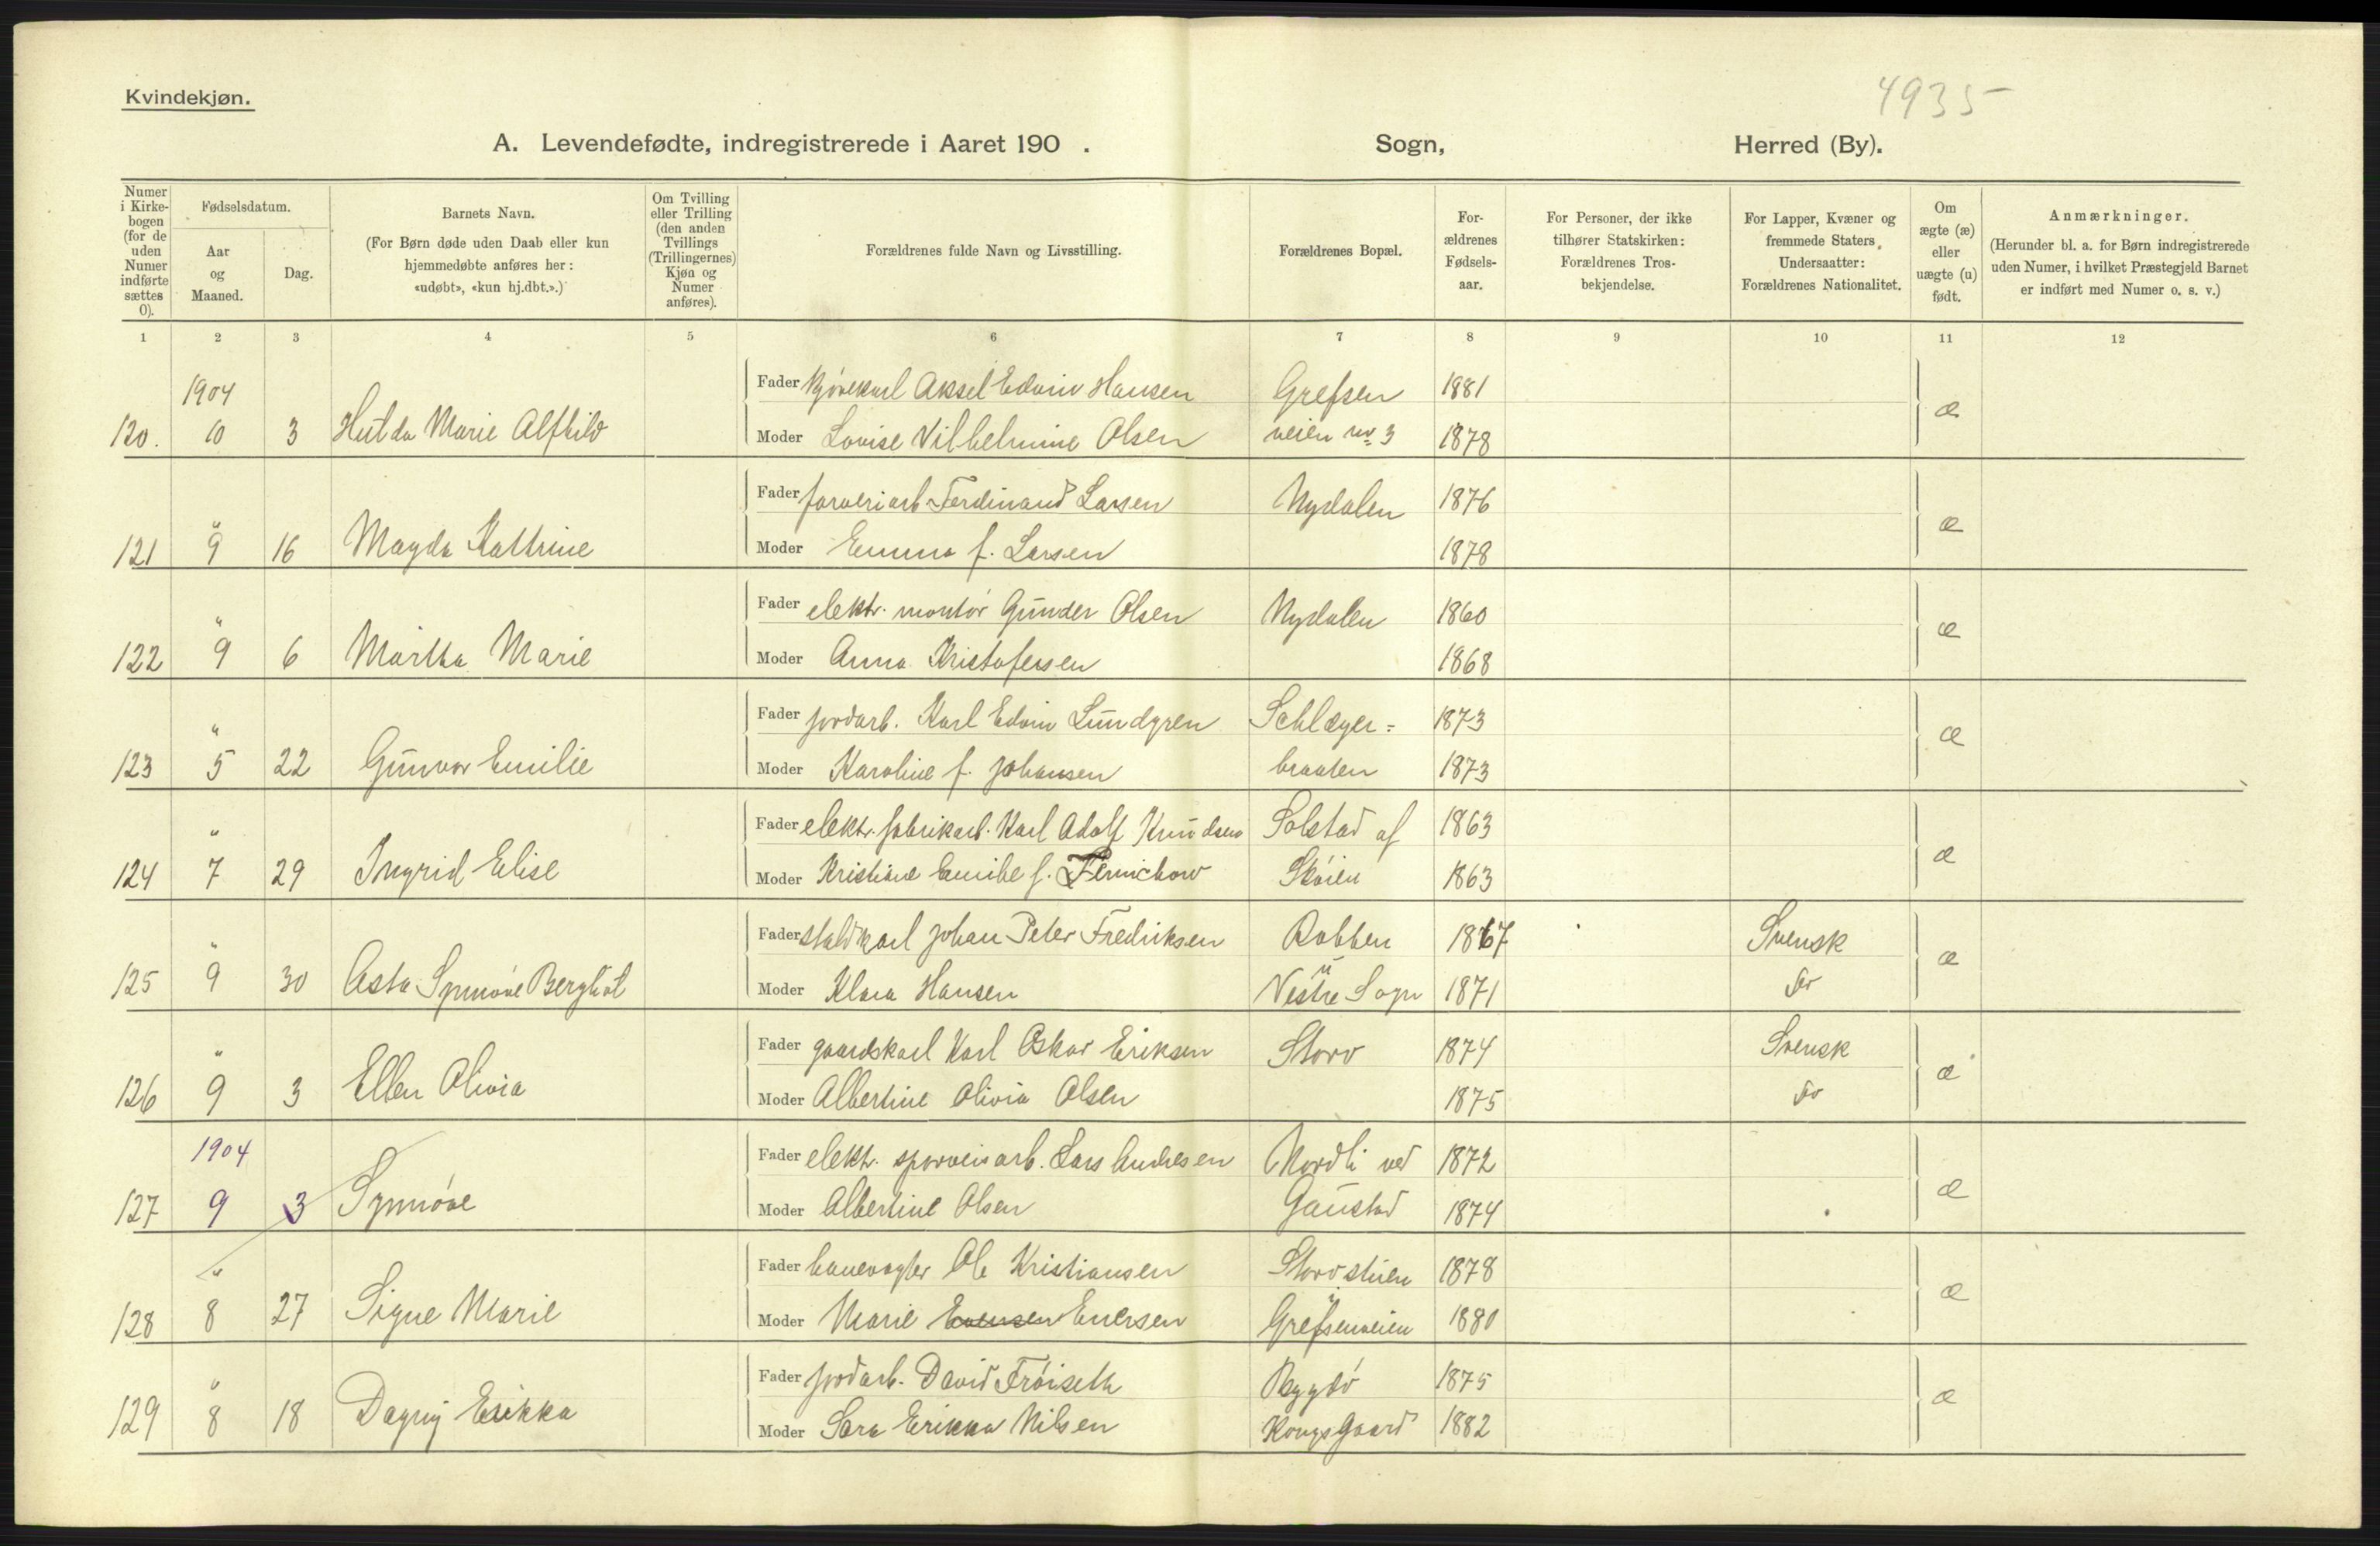 Kvindekjøn.
4935
A. Levendefødte, indregistrerede i Aaret 190 . Sogn, Herred (By).
Numer i Kirkebogen (for de uden Numer indførte sættes 0).
Fødselsdatum.
Aar og Maaned.
Dag.
Barnets Navn.
(For Børn døde uden Daab eller kun hjemmedøbte anføres her: «udøbt», «kun hj.dbt.».)
Om Tvilling eller Trilling (den anden Tvillings (Trillingernes) Kjøn og Numer anføres).
Forældrenes fulde Navn og Livsstilling.
Forældrenes Bopæl.
Forældrenes Fødselsaar.
For Personer, der ikke tilhører Statskirken: Forældrenes Trosbekjendelse.
For Lapper, Kvæner og fremmede Staters Undersaatter: Forældrenes Nationalitet.
Om ægte (æ) eller uægte (u) født.
Anmærkninger.
(Herunder bl. a. for Børn indregistrerede uden Numer, i hvilket Præstegjeld Barnet er indført med Numer o. s. v.)
1 2 3 4 5 6 7 8 9 10 11 12
1904 Fader kjørekarl Aksel Edvin Hansen Grefsen 1881
120. 10 3 Hulda Marie Alfhild Moder Lovise Vilhelmine Olsen veien no 3 1878 æ
" Fader farveriarb. Ferdinand Larsen Nydalen 1876
121 9 16 Magda Kathrine Moder Emma f. Larsen 1878 æ
" Fader elektr. montör Gunder Olsen Nydalen 1860
122 9 6 Martha Marie Moder Anna Kristofersen 1868 æ
" Fader jordarb. Karl Edvin Lundgren Schlæger= 1873
123 5 22 Gunvor Emilie Moder Karoline f. Johansen braaten 1873 æ
" Fader elektr. fabrikarb. Karl Adolf Knudsen Solstad af 1863
124 7 29 Ingrid Elise Moder Kristiane Emilie f. Skøien 1863 æ
" Fader staldkarl Johan Peter Fredriksen Robben 1867 Svensk
125 9 30 Asta Synnøve Bergliot Moder Klara Hansen Vestre Sogn 1871 do æ
" Fader gaardskarl Karl Oskar Eriksen Storo 1874 Svensk
126 9 3 Ellen Olivia Moder Albertine Olivia Olsen 1875 do æ
1904 Fader elektr. sporveisarb. Lars Andresen Nordli ved 1872
127 9 3 Synnøve Moder Albertine Olsen Gaustad 1874 æ
" Fader banevogter Ole Kristiansen Storostuen 1878
128 8 27 Signe Marie Moder Marie Evensen Enersen Grefsenveien 1880 æ
" Fader jordarb. David Frøiseth Bygdø 1875
129 8 18 Dagny Erikka Moder Sara Erikka Nilsen Kongsgaard 1882 æ